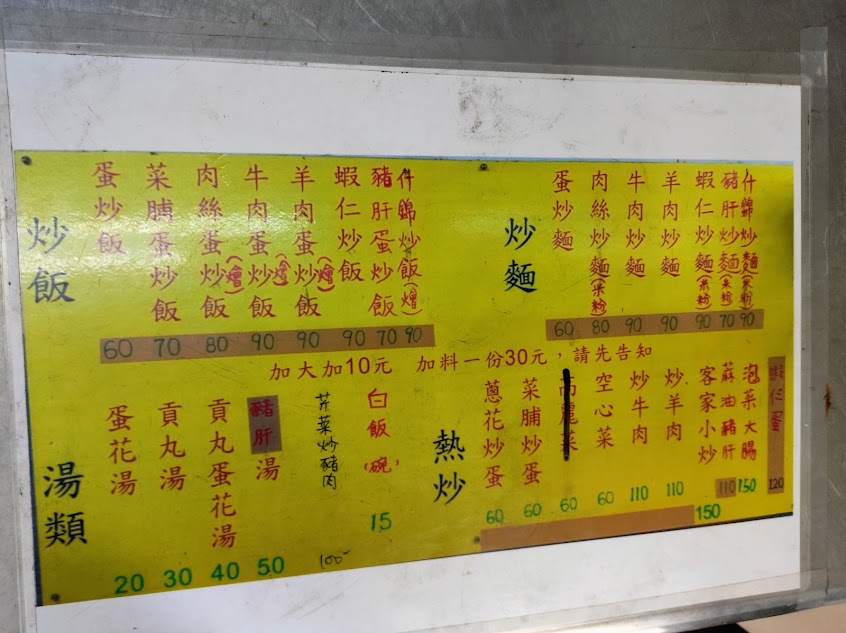 炒飯
蛋炒飯 60
菜脯蛋炒飯 70
肉絲蛋炒飯(燴) 80
牛肉蛋炒飯(燴) 90
羊肉蛋炒飯(燴) 90
蝦仁炒飯 90
豬肝蛋炒飯 70
什錦炒飯(燴) 90
炒麵
蛋炒麵 60
肉絲炒麵(米粉) 80
牛肉炒麵 90
羊肉炒麵 90
蝦仁炒麵(米粉) 90
豬肝炒麵(米粉) 70
什錦炒麵(米粉) 90
加大加10元 加料一份30元，請先告知
湯類
蛋花湯 20
貢丸湯 30
貢丸蛋花湯 40
豬肝湯 50
芹菜炒豬肉 100
白飯(碗) 15
熱炒
蔥花炒蛋 60
菜脯炒蛋 60
高麗菜 60
空心菜 60
炒牛肉 110
炒羊肉 110
客家小炒 150
蔴油豬肝 110
泡菜大腸 150
蝦仁蛋 120